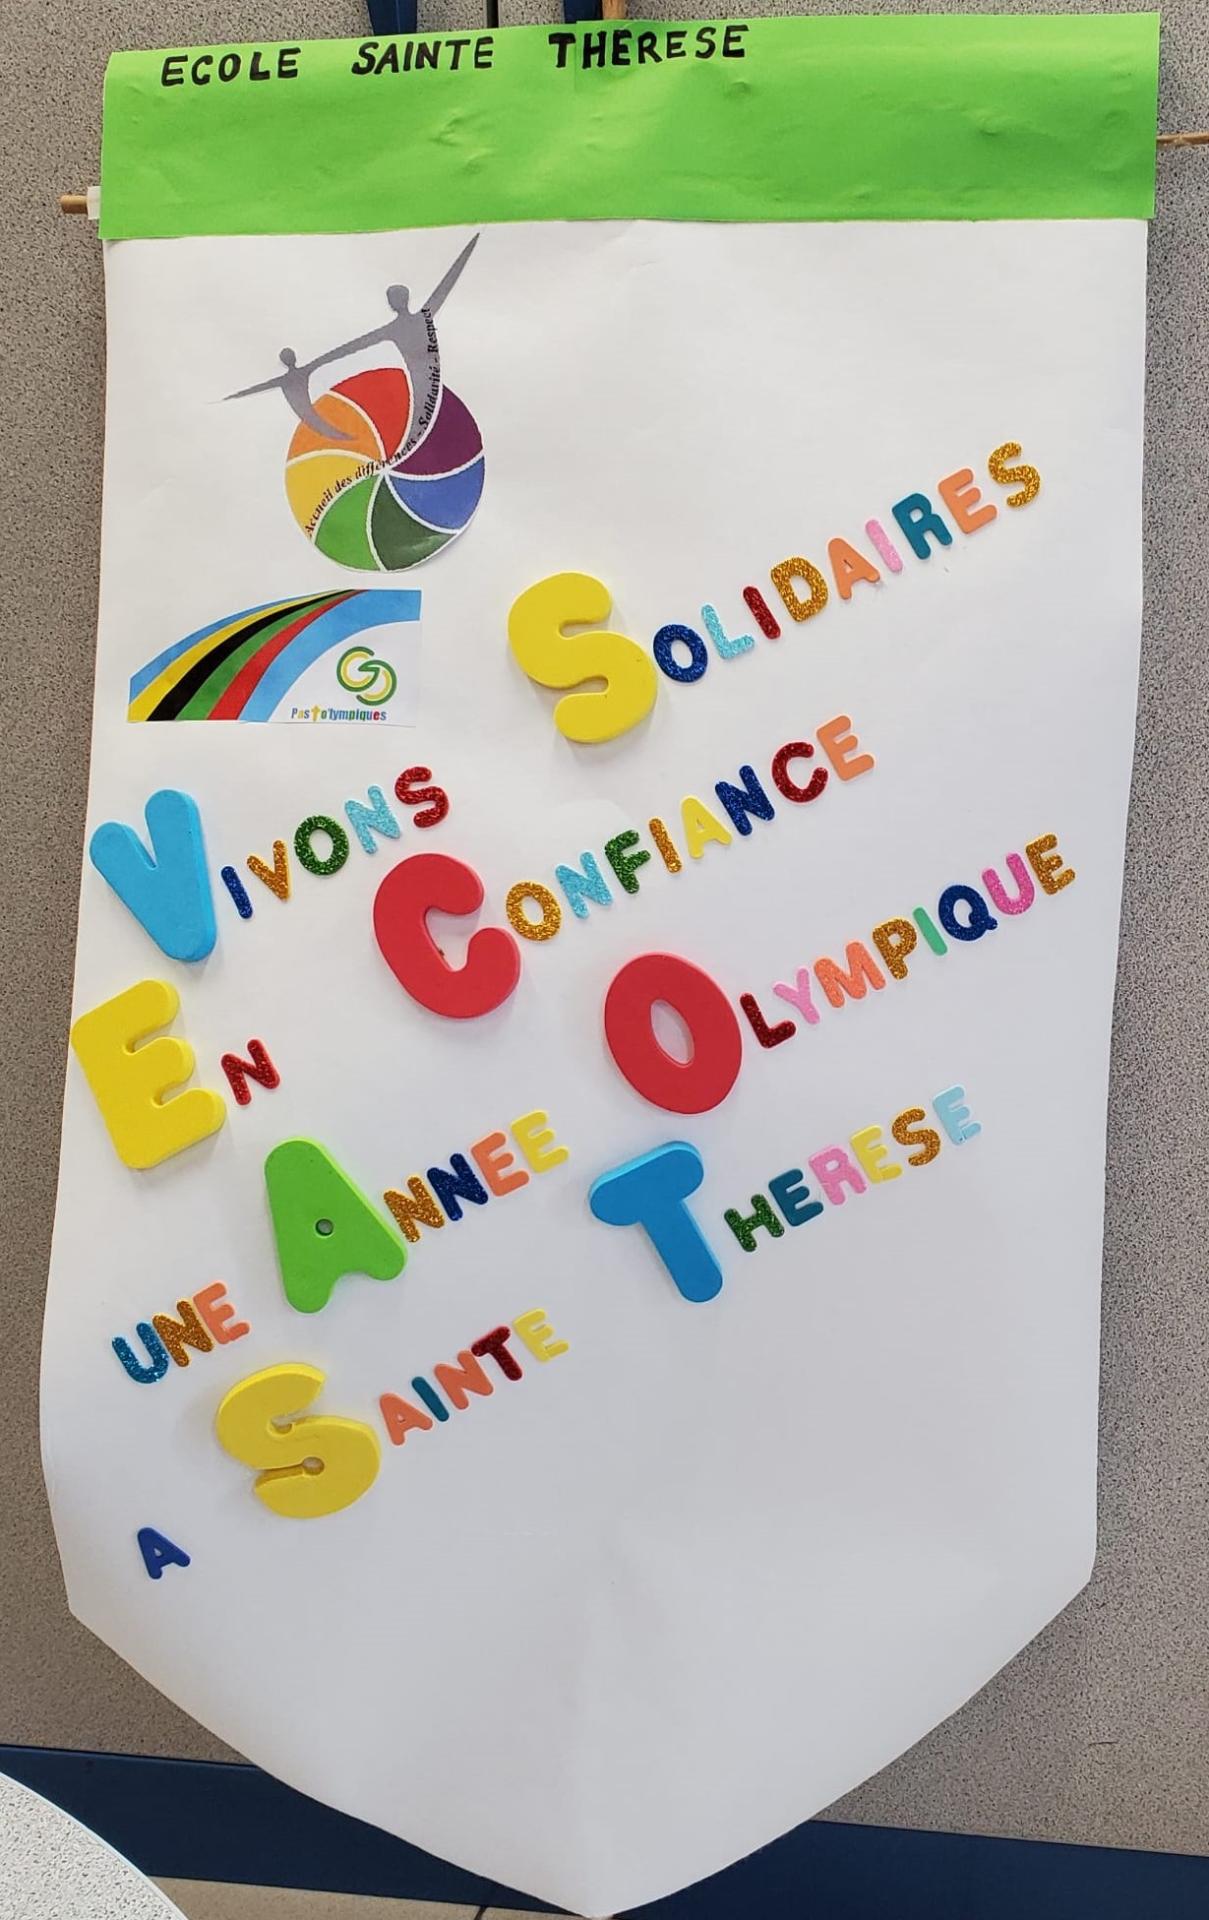 ECOLE SAINTE THERESE
Accueil des différences - Solidarité - Respect
Past o'lympiques
VIVONS SOLIDAIRES
EN CONFIANCE
UNE ANNEE OLYMPIQUE
A SAINTE THERESE